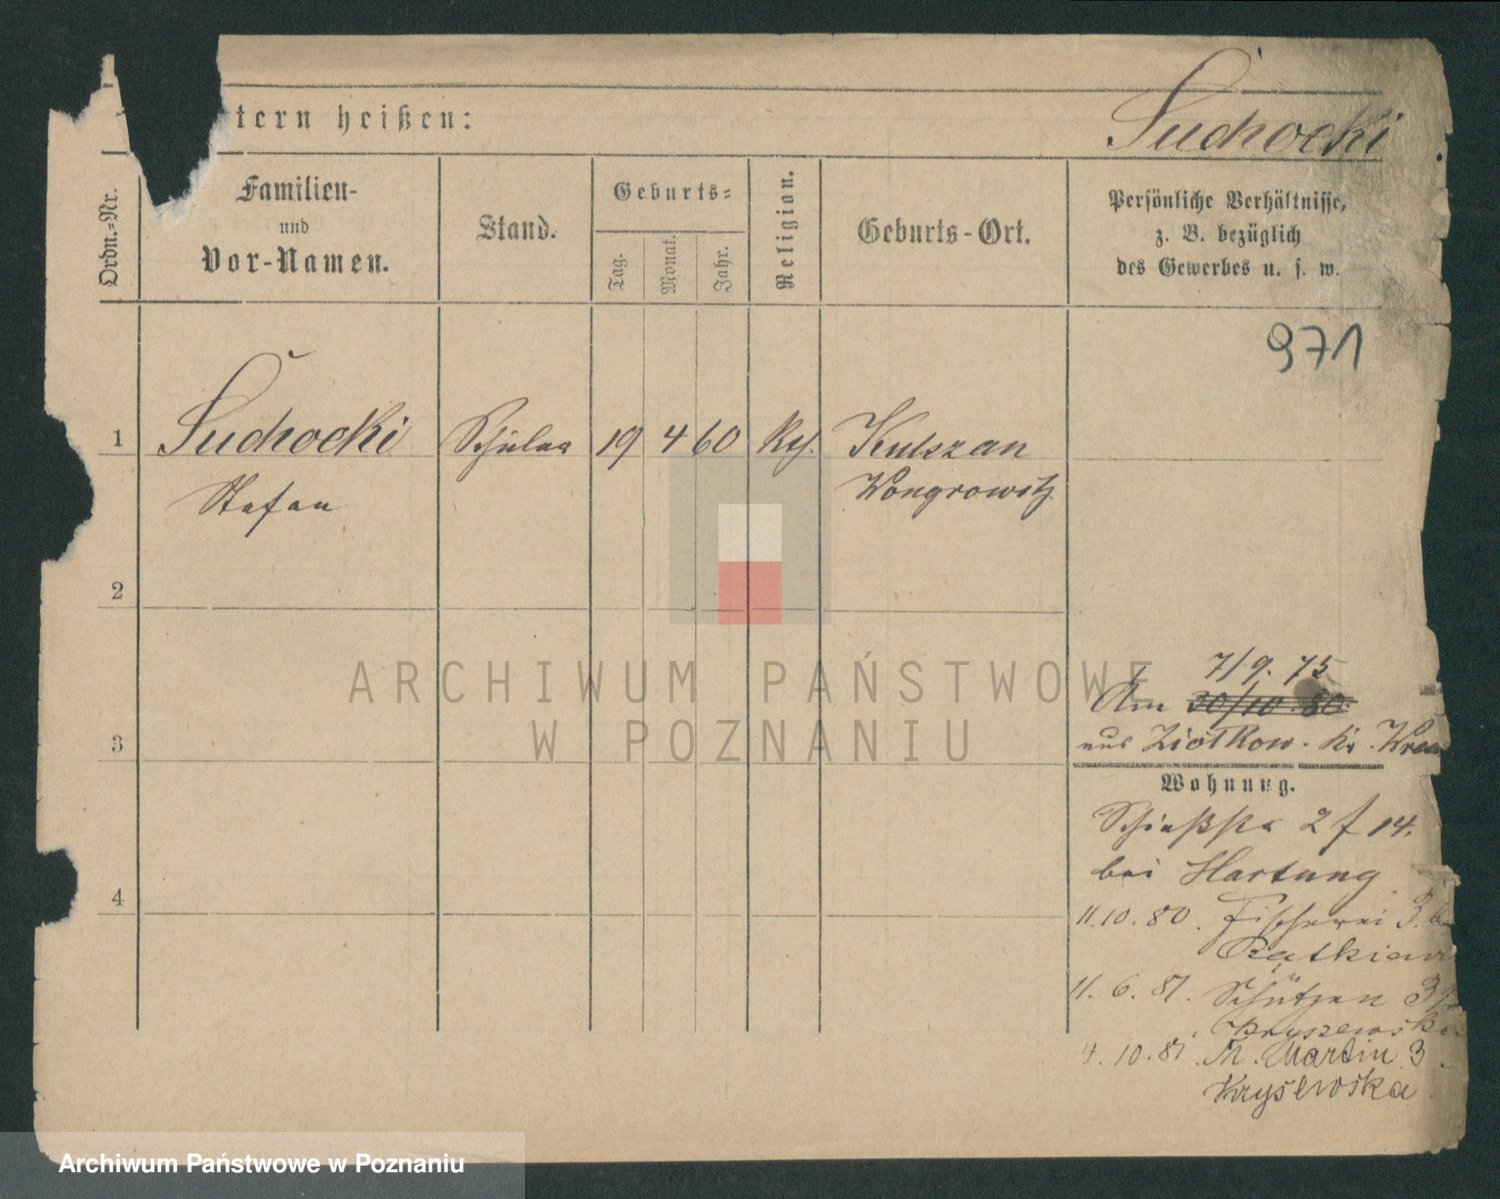 tern heißen:
Suchocki
Ordn.-Nr.
Familien-
und
Vor-Namen.
Stand.
Geburts-
Tag.
Monat.
Jahr.
Religion.
Geburts-Ort.
Persönliche Verhältnisse,
z. B. bezüglich
des Gewerbes u. s. w.
971
1 Suchocki Schüler 19 4 60 Kulszan
Stefan Wongrowitz
2
3
4
7/9. 75
Am 30/10. 80.
aus Ziołkow. Kr.
Wohnung.
Schießstr 2 f 14.
bei Hartung
11.10.80. Fischerei 3.
11.6.81. Schützen 3
4.10.81. St. Martin 3.
Kryśewśka
ARCHIWUM PAŃSTWOWE
W POZNANIU
Archiwum Państwowe w Poznaniu